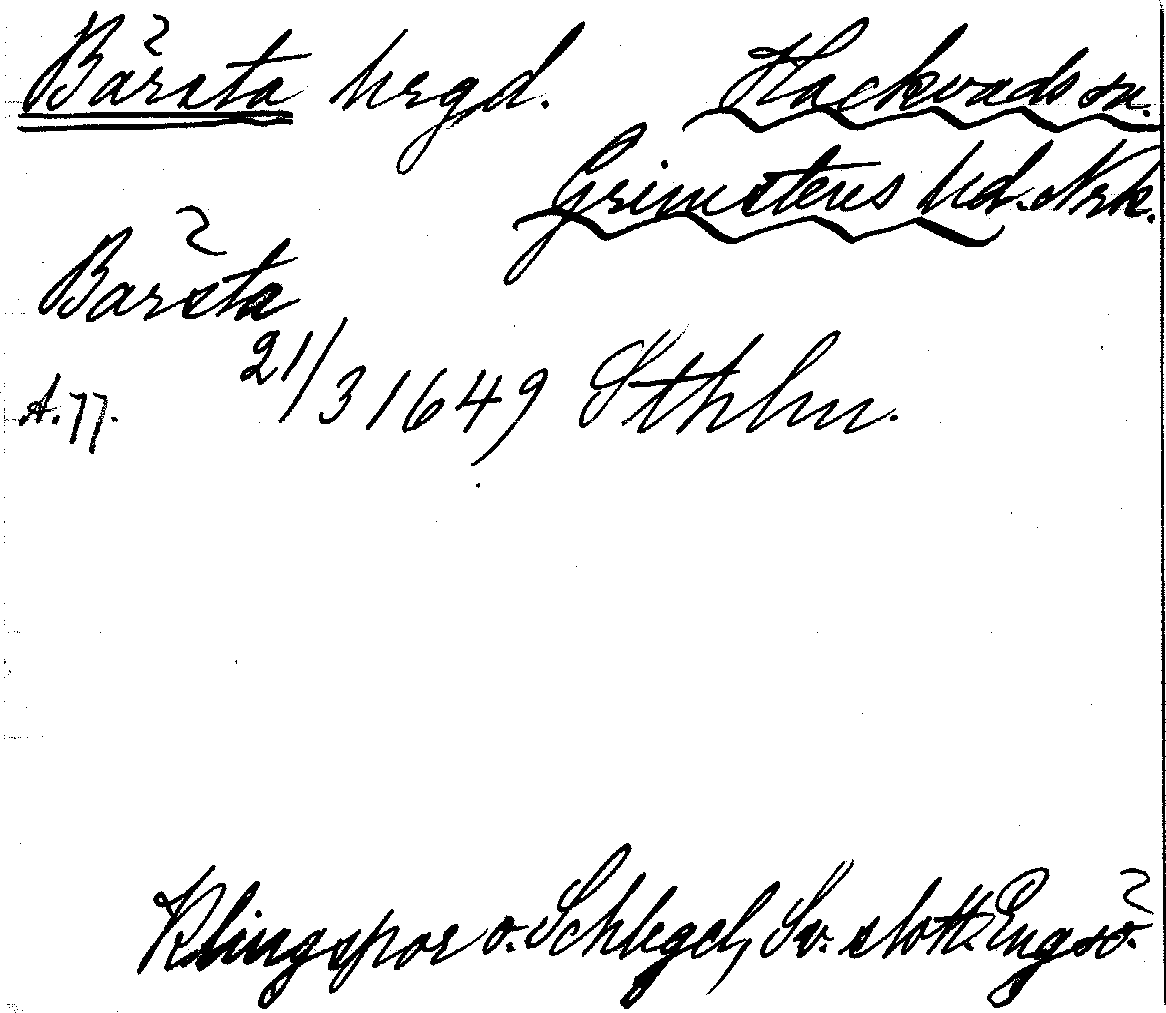 Bärsta hrgd. Hackvads sn.
Grimstens hd. Nrk.
Bärsta
A.77. 21/3 1649 Sthlm.
Klingspor o. Schlegel, Sv. slott. Engsö.